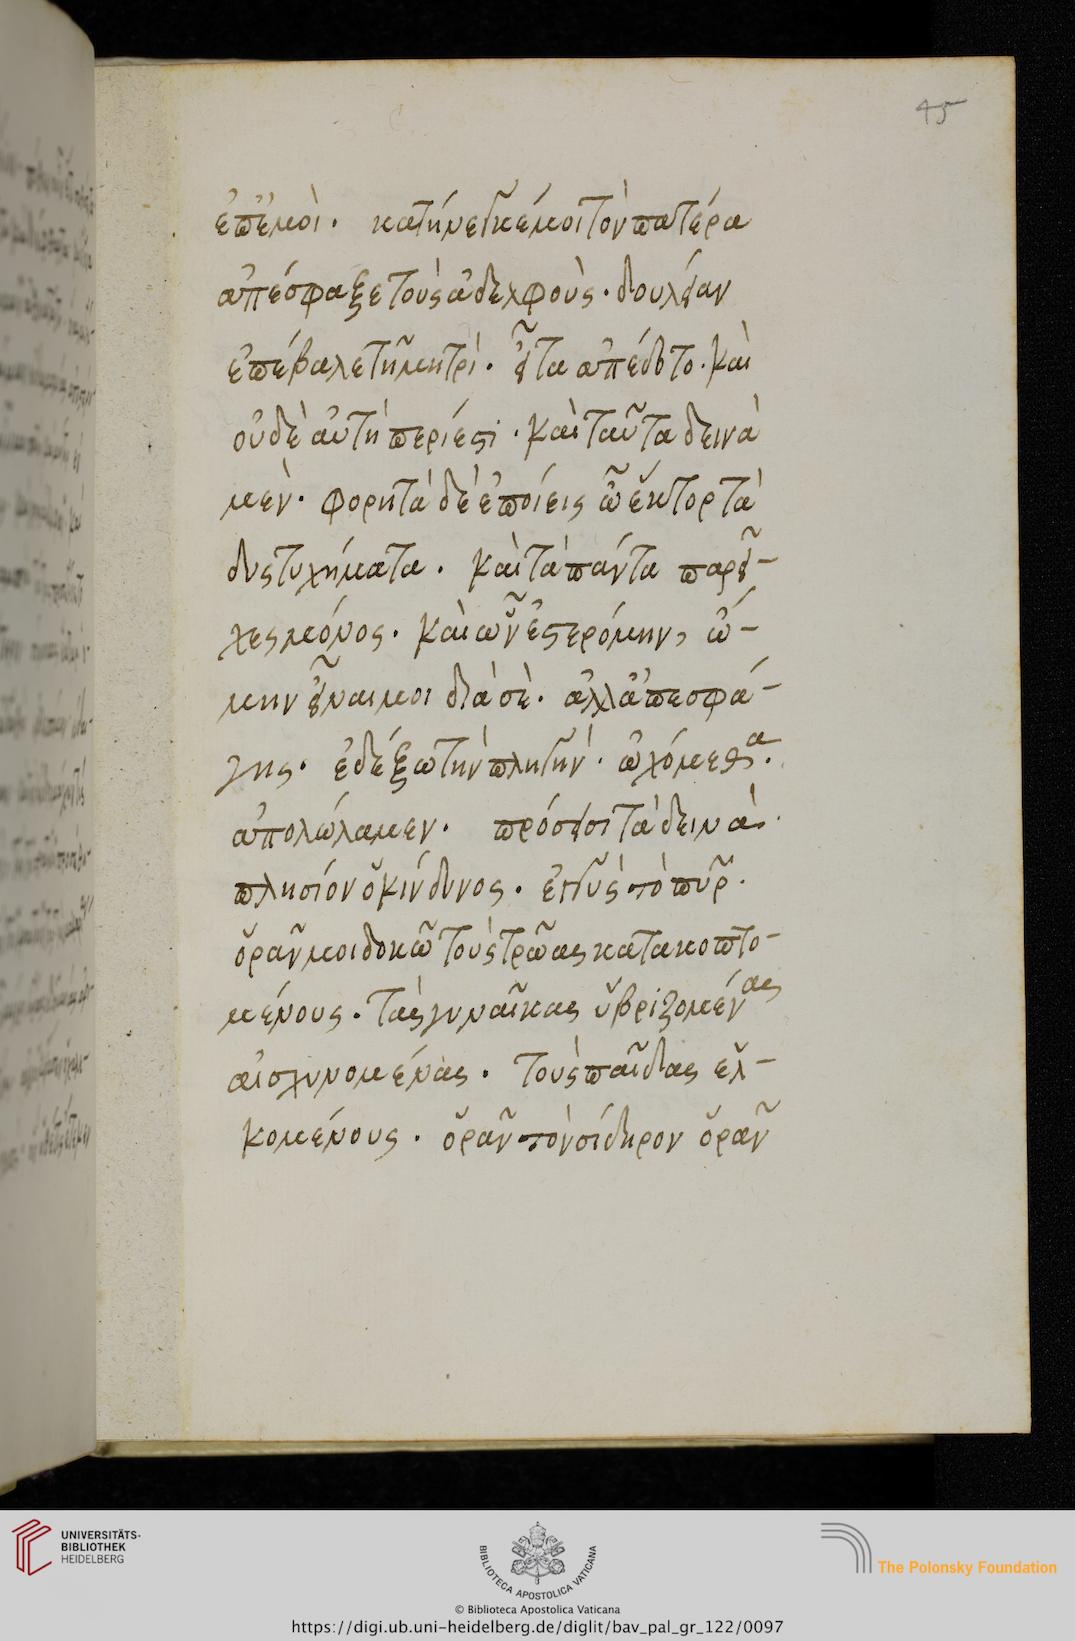 45
ἐπ᾽ ἐμοὶ· κατήνεγκέ μοι τὸν πατέρα
ἀπέσφαξε τοὺς ἀδελφοὺς· δουλείαν
ἐπέβαλε τῆ μητρὶ· εἶτα ἀπέδοτο· καὶ
οὐδὲ αὐτὴ περίεστι· καὶ ταῦτα δεινὰ
μὲν· φορητὰ δὲ ἐποίεις ὦ ἕκτορ τὰ
δυστυχήματα· καὶ τὰ πάντα παρεῖ-
χες μόνος· καὶ ὧν ἐστερόμην, ὤ-
μην εἶναι μοι διὰ σὲ· ἀλλ᾽ ἀπεσφά-
γης· ἐδέξω τὴν πληγὴν· ὠχόμεθα·
ἀπολώλαμεν· πρόσεισι τὰ δεινὰ·
πλησίον ὁ κίνδυνος· ἐγγὺς τὸ πῦρ·
ὁρᾶν μοι δοκῶ τοὺς τρῶας κατακοπτο-
μένους· τὰς γυναῖκας ὑβριζομένας
αἰσχυνομένας· τοὺς παῖδας ἑλ-
κομένους· ὁρᾶν τὸν σίδηρον ὁρᾶν
UNIVERSITÄTS-
BIBLIOTHEK
HEIDELBERG
BIBLIOTECA APOSTOLICA VATICANA
The Polonsky Foundation
© Biblioteca Apostolica Vaticana
https://digi.ub.uni-heidelberg.de/diglit/bav_pal_gr_122/0097